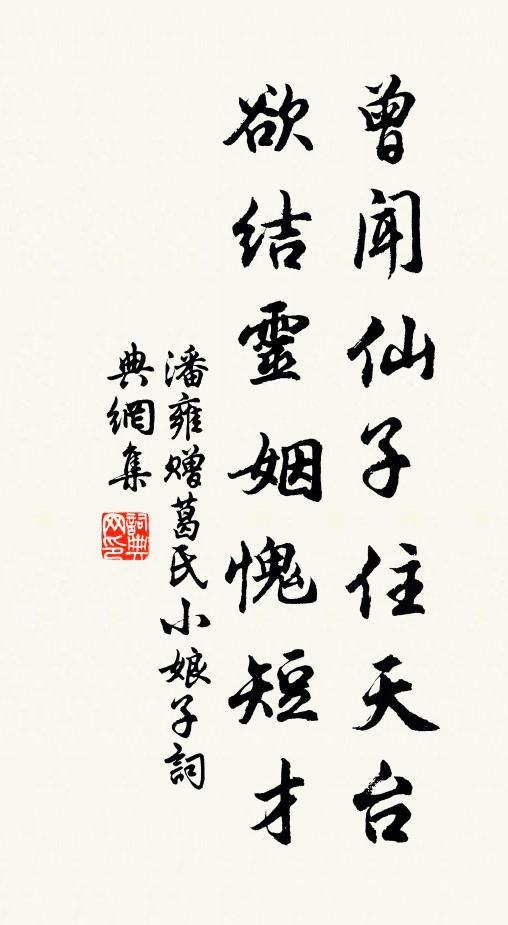 曾聞仙子住天台
欲结靈姻愧短才
潘雍赠葛氏小娘子詞
典網集
詞典网印